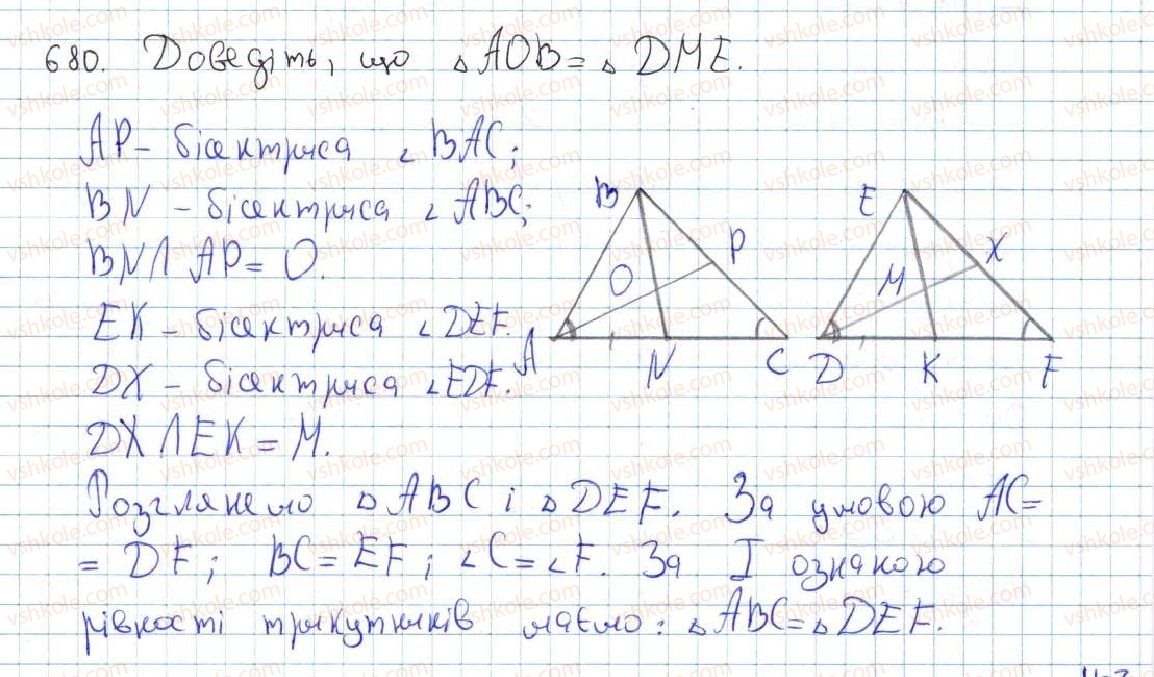 680. Доведіть, що ▵ AOB = ▵ DME.
AP – бісектриса ∠ BAC;
BN – бісектриса ∠ ABC;
BN ∩ AP = O.
EK – бісектриса ∠ DEF.
DX – бісектриса ∠ EDF.
DX ∩ EK = M.
B
P
O
A
N
C
E
X
M
D
K
F
Розглянемо ▵ ABC і ▵ DEF. За умовою AC =
= DF; BC = EF; ∠C = ∠F. За I ознакою
рівності трикутників маємо: ▵ ABC = ▵ DEF.
vshkole.com